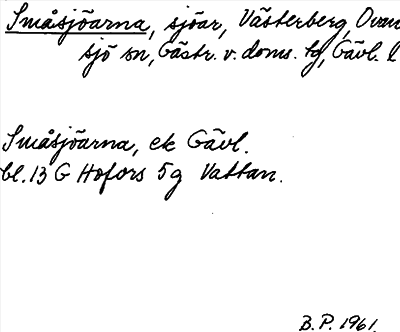 Småsjöarna, sjöar, Västerberg, Ovan
sjö sn, Gästr. v. doms. tg, Gävl. l
Småsjöarna, ek Gävl.
bl. 13 G Hofors 5g Vattan.
B.P. 1961.